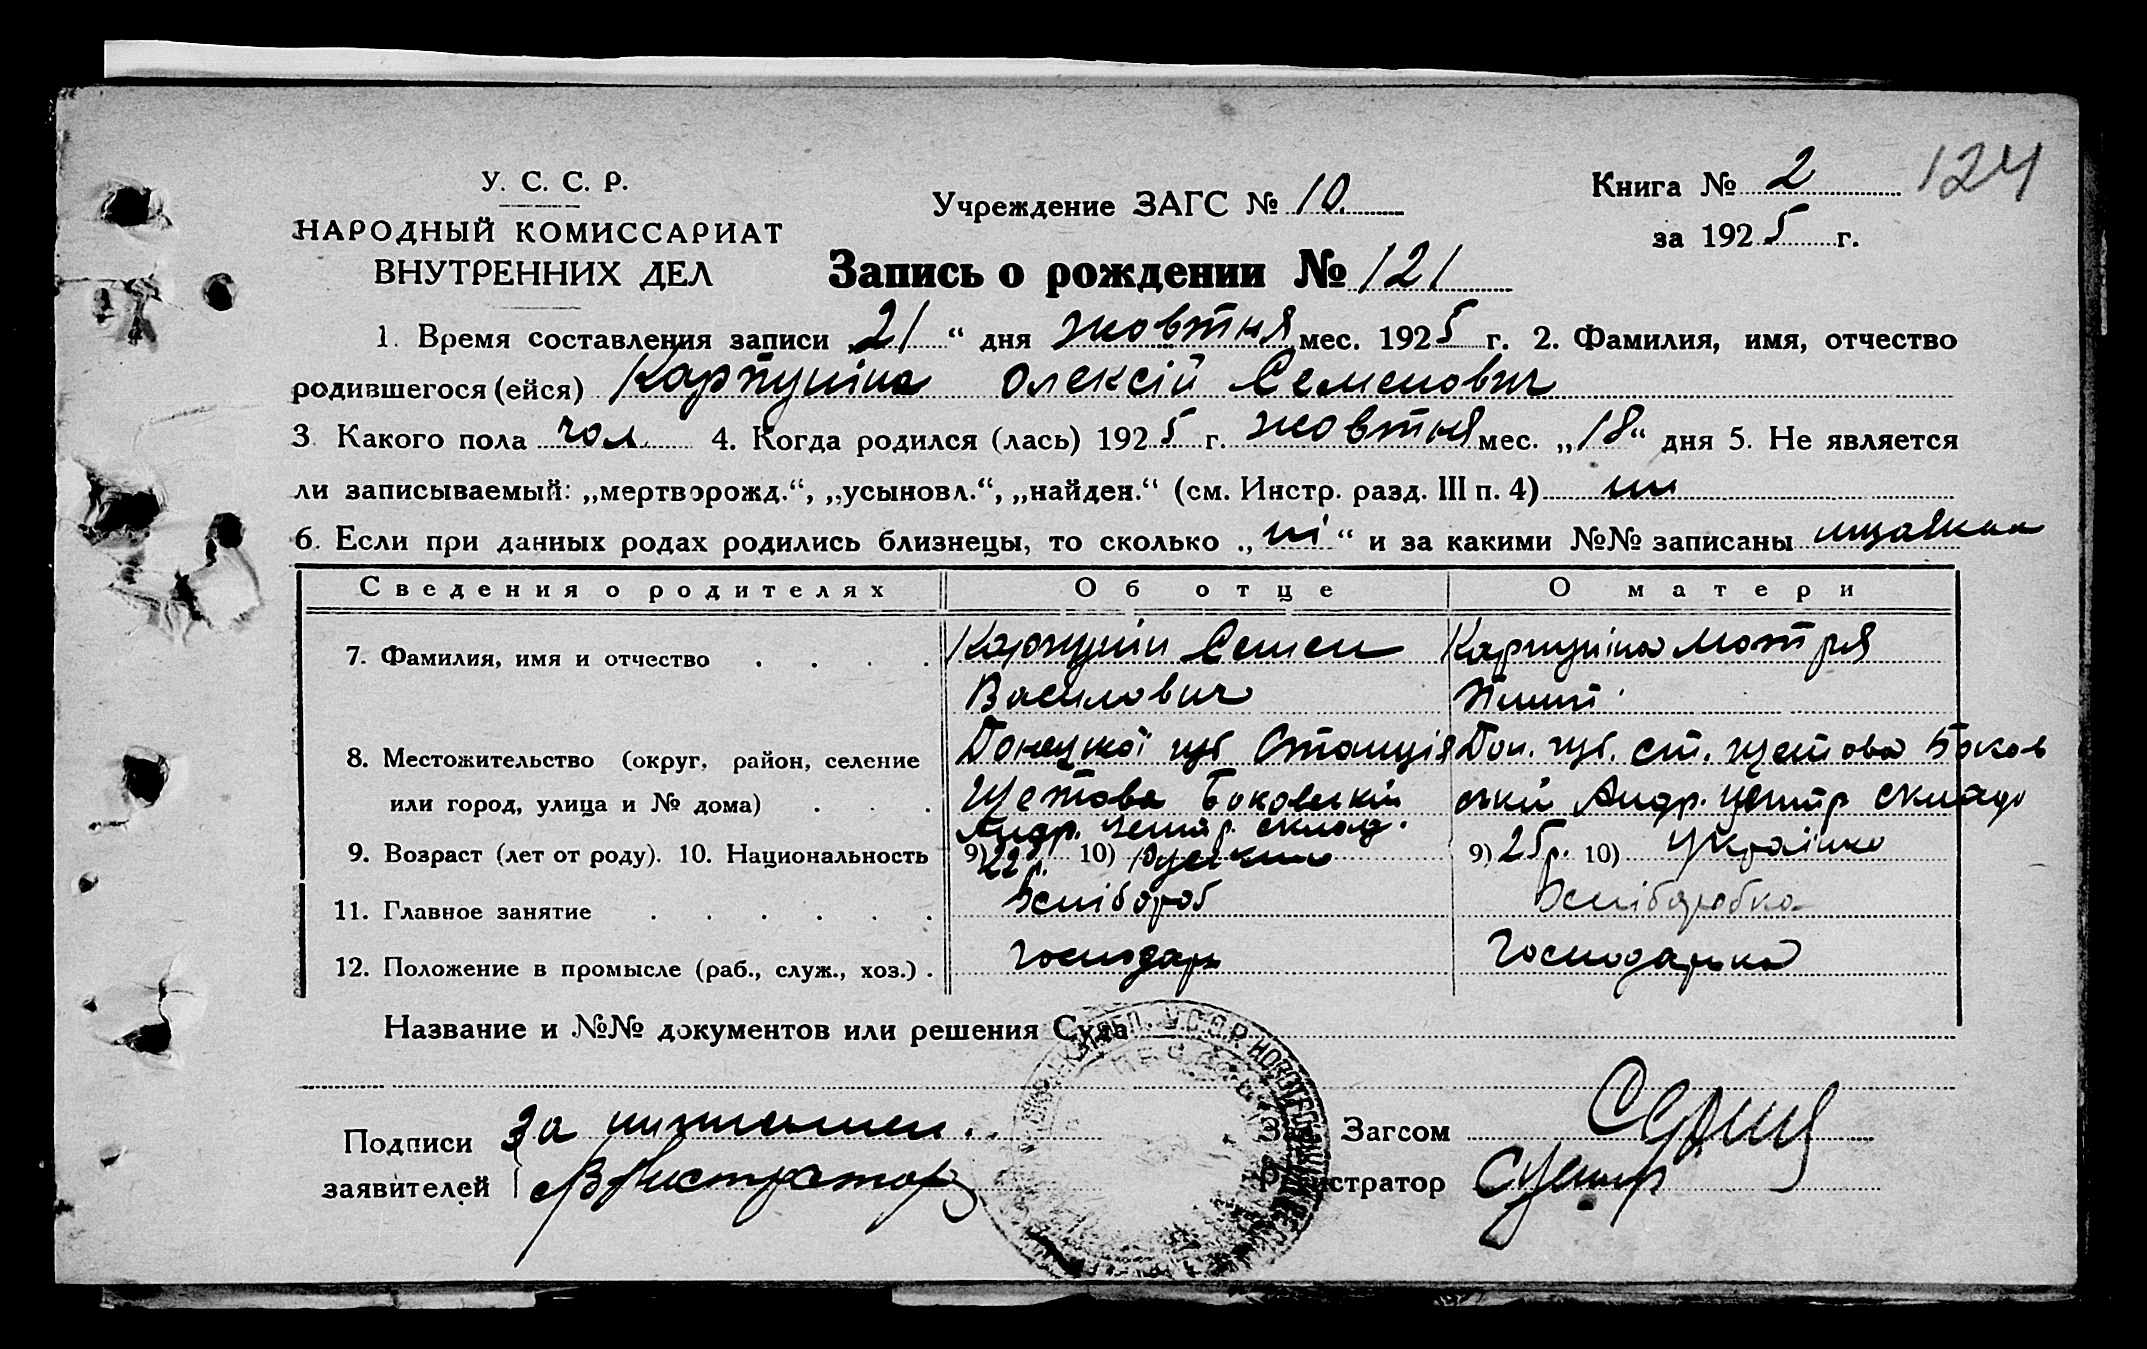 У. С. С. Р.
НАРОДНЫЙ КОМИССАРИАТ
ВНУТРЕННИХ ДЕЛ
Учреждение ЗАГС № 10
Книга № 2
124
за 1925 г.
Запись о рождении № 121
1. Время составления записи „21“ дня жовтня мес. 1925 г. 2. Фамилия, имя, отчество
родившегося (ейся) Карпуніна Олексій Семенович
3. Какого пола чол. 4. Когда родился (лась) 1925 г. жовтня мес. „18“ дня 5. Не является
ли записываемый: „мертворожд.“, „усыновл.“, „найден.“ (см. Инстр. разд. III п. 4) ні
6. Если при данных родах родились близнецы, то сколько „ні“ и за какими №№ записаны
Сведения о родителях Об отце О матери
7. Фамилия, имя и отчество . . . . Карпунін Семен Карпуніна Мотря
Василович
8. Местожительство (округ, район, селение Донецкої губ Станція Дон. губ. ст. Щетова Боков
или город, улица и № дома) . . . Щетова Боковський ський Андр. центр склад
Андр. центр. склад.
9. Возраст (лет от роду). 10. Национальность 9) 22 р. 10) 9) 25 р. 10) Українка
11. Главное занятие . . . . . . Хлібороб Хліборобка
12. Положение в промысле (раб., служ., хоз.) . Господарь Господарька
Название и №№ документов или решения Суда
Подписи За
заявителей
Зав. Загсом
Регистратор